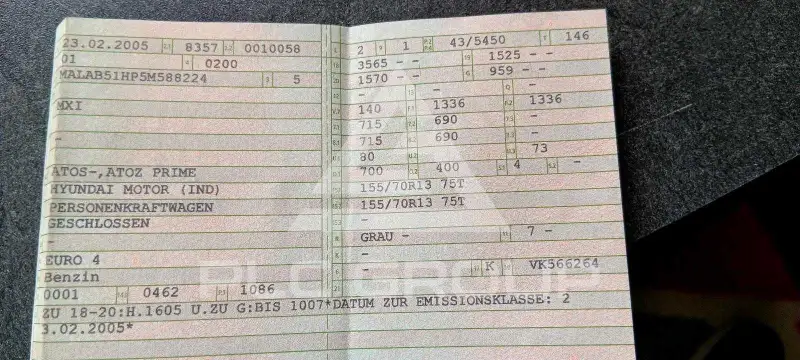 23.02.2005 2.1 8357 2.2 0010058
01 4 0200
MALAB51HP5M588224 3 5
MXI
-
ATOS-,ATOZ PRIME
HYUNDAI MOTOR (IND)
PERSONENKRAFTWAGEN
GESCHLOSSEN
-
EURO 4
Benzin
0001 0462 1086
2 9 1 43/5450 T 146
18 3565 - - 19 1525 - -
20 1570 - - G 959 - -
- - -
140 1336 1336
715 690 -
715 690 -
80 73
700 400 4 -
155/70R13 75T
155/70R13 75T
-
R GRAU - 11 7 -
-
- K VK566264
ZU 18-20:H.1605 U.ZU G:BIS 1007*DATUM ZUR EMISSIONSKLASSE: 2
3.02.2005*
PLC GROUP